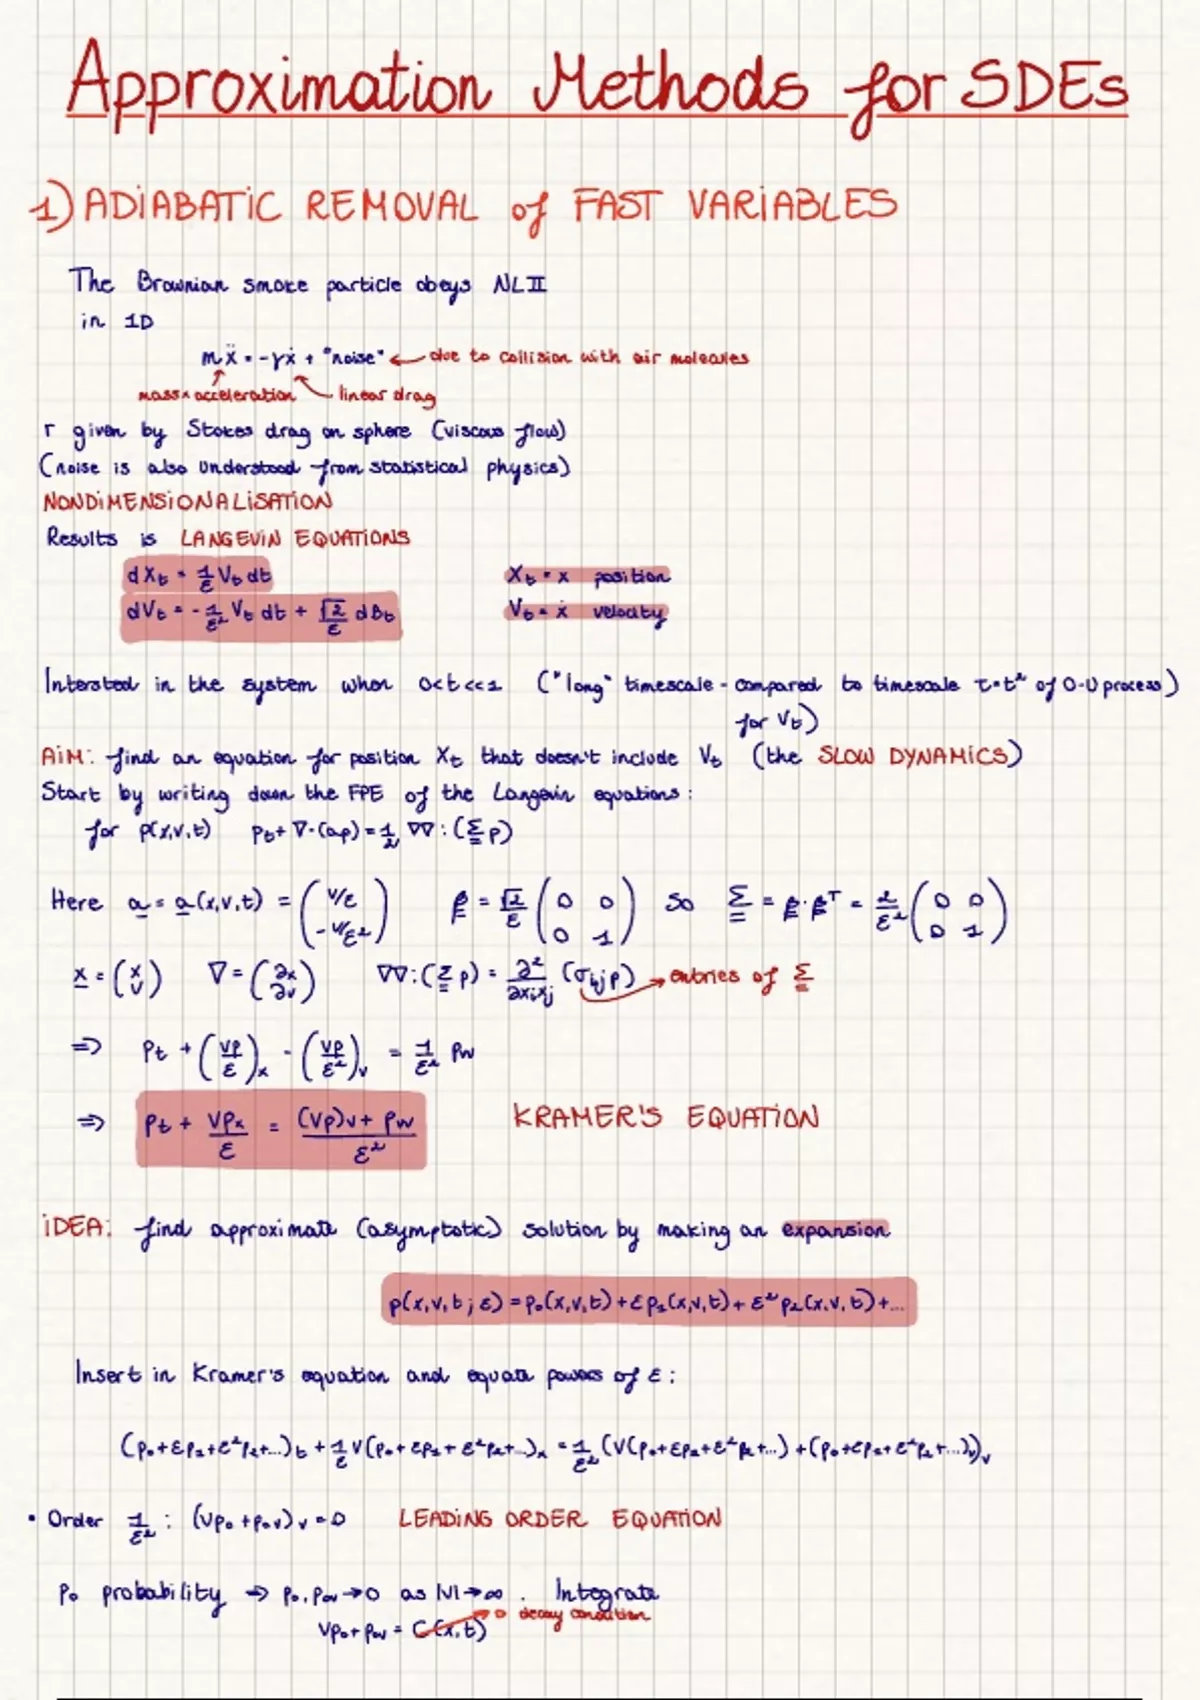 Approximation Methods for SDEs
1) ADIABATIC REMOVAL of FAST VARIABLES
The Brownian smoke particle obeys NLII
in 1D
mẍ = -γẋ + "noise" ← due to collision with air molecules
mass × acceleration linear drag
r given by Stokes drag on sphere (viscous flow)
(noise is also understood from statistical physics)
NONDIMENSIONALISATION
Results is LANGEVIN EQUATIONS
dX_t = 1/ε V_t dt X_t = x position
dV_t = - 1/ε² V_t dt + √2/ε dB_t V_t = ẋ velocity
Intersted in the system when 0<t<<1 ("long" timescale - compared to timescale τ=t² of O-U process)
for V_t)
AIM: find an equation for position X_t that doesn't include V_t (the SLOW DYNAMICS)
Start by writing down the FPE of the Langevin equations:
for p(x,v,t) p_t + ∇·(ap) = 1/2 ∇∇:(Σp)
Here a = a(x,v,t) = (v/ε -v/ε²) β = √2/ε (0 0 0 1) so Σ = β·β^T = 2/ε² (0 0 0 1)
x = (x v) ∇ = (∂x ∂v) ∇∇:(Σp) = ∂²/∂x_i x_j (σ_ij p) → entries of Σ
=> p_t + (vp/ε)_x - (vp/ε²)_v = 1/ε² p_vv
=> p_t + vp_x/ε = (vp)_v + p_vv/ε² KRAMER'S EQUATION
IDEA: find approximate (asymptotic) solution by making an expansion
p(x,v,t;ε) = p₀(x,v,t) + εp₁(x,v,t) + ε²p₂(x,v,t)+...
Insert in Kramer's equation and equate powers of ε:
(p₀+εp₁+ε²p₂+...)_t + 1/ε v(p₀+εp₁+ε²p₂+...)_x = 1/ε² (v(p₀+εp₁+ε²p₂+...)+(p₀+εp₁+ε²p₂+...)_v)_v
• Order 1/ε²: (vp₀+p₀v)_v = 0 LEADING ORDER EQUATION
p₀ probability => p₀, p₀v → 0 as |v|→∞. Integrate
vp₀ + p₀v = C(x,t) 0 decay condition